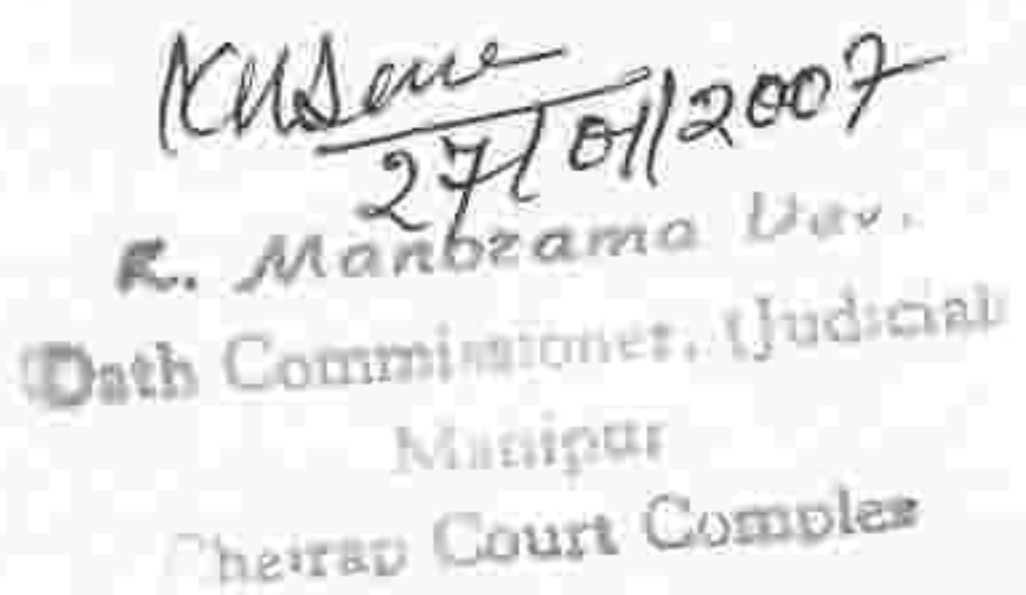 27/01/2007
K. Manorama Devi.
Oath Commissioner, (Judicial)
Manipur
Cheirap Court Complex